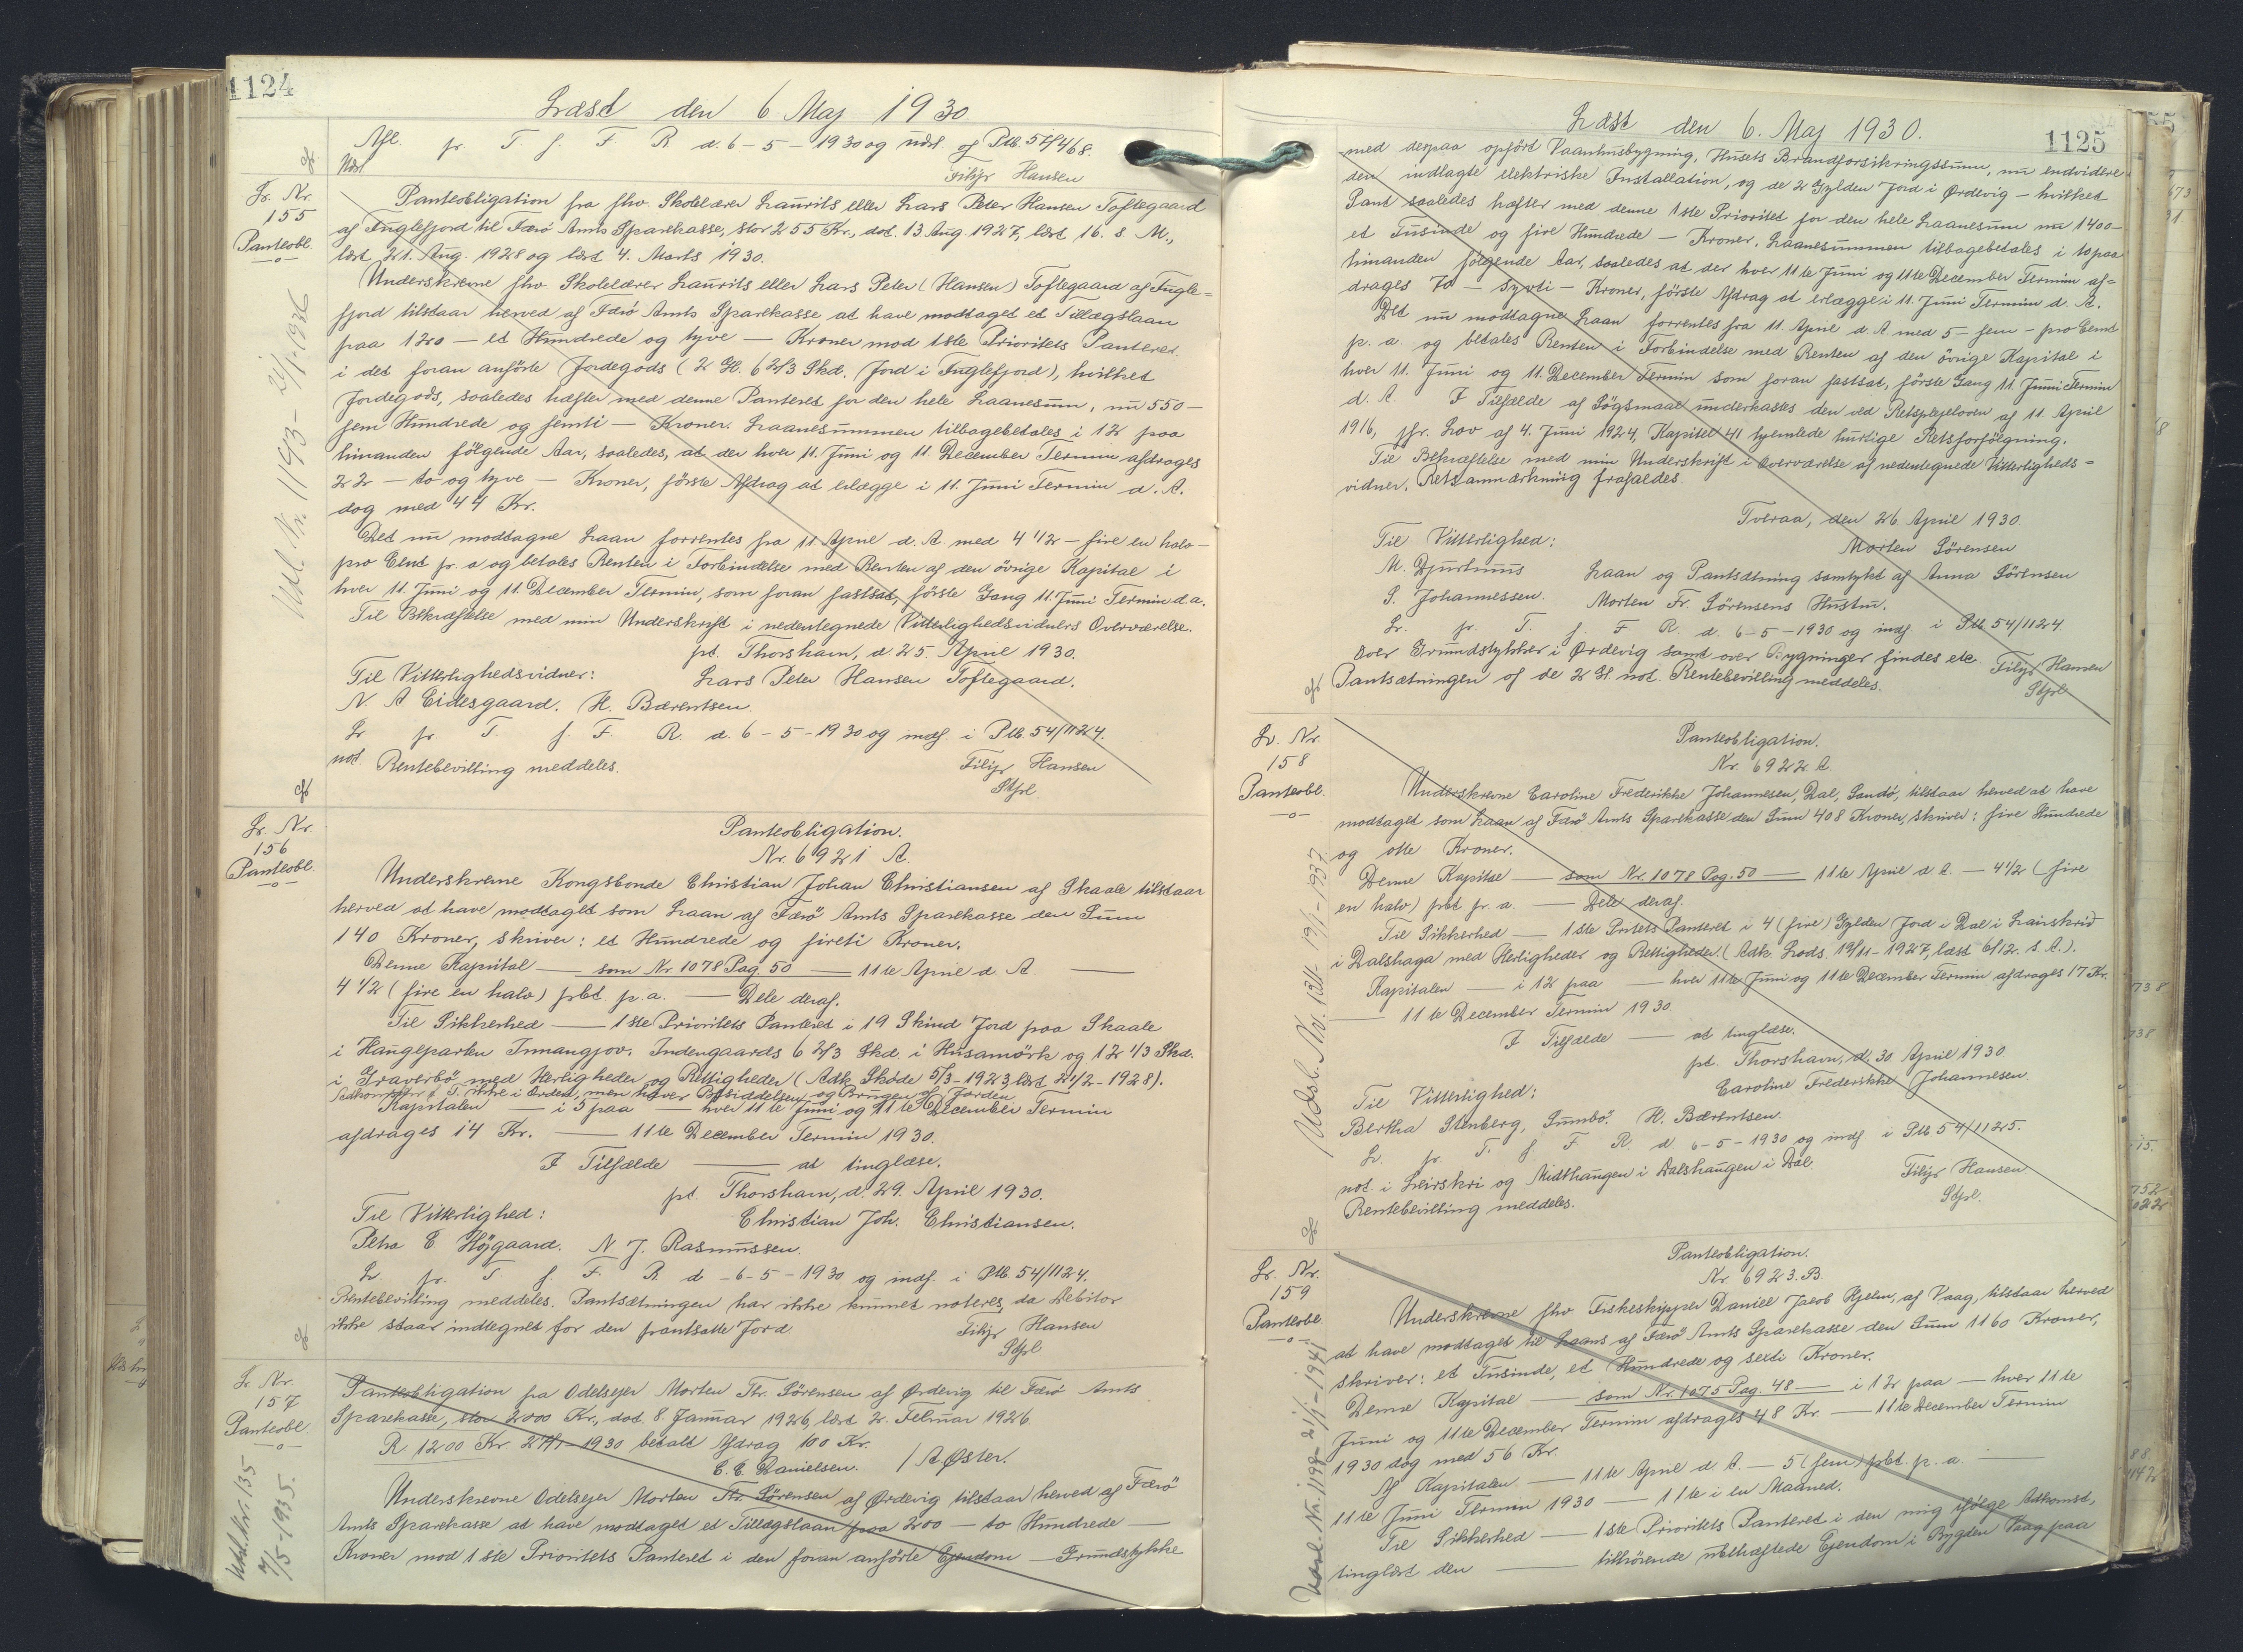 1124
Læst den 6 Maj 1930.
Afl. pr. T. f. F. R. d. 6-5-1930 og udsl. af Ptb. 54/468.
Filip Hansen
Lr. Nr.
155
Panteobl.
Panteobligation fra fhv. Skolelærer Laurits eller Lars Peter Hansen Toftegaard
af Fuglefjord til Færö Amts Sparekasse, stor 255 Kr., dat. 13 Aug 1927, læst 16. s. M.,
læst 21. Aug. 1928 og læst 4. Marts 1930.
Underskrevne fhv. Skolelærer Laurits eller Lars Peter (Hansen) Toftegaard af Fugle=
fjord tilstaar herved af Færö Amts Sparekasse at have modtaget et Tillægslaan
paa 120 — et Hundrede og tyve — Kroner mod 1ste Prioritets Panteret
i det foran anførte Jordegods (2 Gl. 6 2/3 Skd. Jord i Fuglefjord), hvilket
Jordegods, saaledes hæfter med denne Panteret for den hele Laanesum, nu 550 —
fem Hundrede og femti — Kroner. Laanesummen tilbagebetales i 12 paa
hinanden følgende Aar, saaledes, at der hver 11. Juni og 11. December Termin afdrages
22 — to og tyve — Kroner, første Afdrag at erlægge i 11. Juni Termin d. A.
dog med 44 Kr.
Det nu modtagne Laan forrentes fra 11 April d. A. med 4 1/2 — fire en halv —
pro Cent pr. a og betales Renten i Forbindelse med Renten af den øvrige Kapital i
hver 11. Juni og 11. December Termin, som foran fastsat, første Gang 11. Juni Termin d.a.
Til Bekræftelse med min Underskrift i nedentegnede Vitterlighedsvidners Overværelse.
pt. Thorshavn, d. 25. April 1930.
Til Vitterlighedsvidner: Lars Peter Hansen Toftegaard.
N. A Eidesgaard. H. Bærentsen.
Lr pr. T. f. F. R. d. 6-5-1930 og indf. i Ptb. 54/1124.
not. Rentebevilling meddeles. Filip Hansen
Stfvl.
Udsl. Nr. 1193 - 21/1-1936
Lr. Nr.
156
Panteobl.
Panteobligation.
Nr. 6921 A.
Underskrevne Kongsbonde Christian Johan Christiansen af Skaale tilstaar
herved at have modtaget som Laan af Færö Amts Sparekasse den Sum
140 Kroner, skriver: et Hundrede og fireti Kroner.
Denne Kapital — som Nr. 1078 Pag. 50 — 11te April d. A —
4 1/2 (fire en halv) pct. p.a. — Dele deraf.
Til Sikkerhed — 1ste Prioritets Panteret i 19 Skind Jord paa Skaale
i Haugeparten Innangjov. Indengaards 6 2/3 Skd. i Húsamörk og 12 1/3 Skd.
i Graverbö med Herligheder og Rettigheder (Adk. Skøde 5/3-1923, læst 21/2-1928).
ikke i Orden, men haver Besiddelsen og Brugen af Jorden.
Kapitalen — i 5 paa — hver 11te Juni og 11te December Termin
afdrages 14 Kr. — 11te December Termin 1930.
I Tilfælde — at tinglæse.
pt. Thorshavn, d. 29. April 1930.
Til Vitterlighed: Christian Joh. Christiansen.
Petra E. Højgaard. N J. Rasmussen.
Lr. pr. T f. F. R d -6-5-1930 og indf. i Ptb. 54/1124.
Rentebevilling meddeles. Pantsætningen har ikke kunnet noteres, da Debitor
ikke staar indtegnet for den pantsatte Jord. Filip Hansen
Stfvl
Lr Nr.
157
Panteobl.
Panteobligation fra Odelsejer Morten Fr. Sörensen af Ørdevig til Færö Amts
Sparekasse, stor 2000 Kr., dat. 8. Januar 1926, læst 2. Februar 1926.
R 1200 Kr. 1930 betalt Afdrag 100 Kr.
C. C. Danielsen. / A Øster.
Underskrevne Odelsejer Morten Fr. Sörensen af Ørdevig tilstaar herved af Færö
Amts Sparekasse at have modtaget et Tillægslaan paa 200 — to Hundrede —
Kroner mod 1ste Prioritets Panteret i den foran anførte Ejendom — Grundstykke
Udsl. Nr. 135
7/5-1935.
1125
Læst den 6. Maj 1930.
med derpaa opført Vaanhusbygning, Husets Brandforsikringssum, nu endvidere
den indlagte elektriske Installation, og de 2 Gylden Jord i Ørdevig — hvilket
Pant saaledes hæfter med denne 1ste Prioritet for den hele Laanesum nu 1400 —
et Tusinde og fire Hundrede — Kroner. Laanesummen tilbagebetales i 10 paa
hinanden følgende Aar, saaledes at der hver 11te Juni og 11te December Termin af=
drages 70 — syvti — Kroner, første Afdrag at erlægge i 11. Juni Termin d. A.
Det nu modtagne Laan forrentes fra 11. April d. A med 5 — fem — pro Cent
p. a. og betales Renten i Forbindelse med Renten af den øvrige Kapital i
hver 11. Juni og 11. December Termin som foran fastsat, første Gang 11. Juni Termin
d. A. I Tilfælde af Søgsmaal underkastes den ved Retsplejeloven af 11. April
1916, jfr. Lov af 4. Juni 1924, Kapitel 41 hjemlede hurtige Retsforfølgning.
Til Bekræftelse med min Underskrift i Overværelse af nedentegnede Vitterligheds=
vidner. Retsanmærkning frafaldes.
Tveraa, den 26 April 1930.
Til Vitterlighed: Morten Sörensen
M. Djurhuus Laan og Pantsætning samtykt af Anna Sörensen
S. Johannessen. Morten Fr. Sörensens Hustru.
Lr. pr. T. f. F R. d. 6-5-1930 og indf i Ptb 54/1124
over Grundstykker i Ørdevig samt over Bygninger findes ikke Filip Hansen
Pantsætningen af de 2 Gl not. Rentebevilling meddeles. Stfvl
Lr. Nr.
158
Panteobl.
Panteobligation.
Nr. 6922 A.
Underskrevne Caroline Frederikke Johannesen, Dal, Sandö, tilstaar herved at have
modtaget som Laan af Færö Amts Sparekasse den Sum 408 Kroner, skriver: fire Hundrede
og otte Kroner.
Denne Kapital — som Nr. 1078 Pag. 50 — 11te April d. A. — 4 1/2 (fire
en halv) pct pr. a. — Dele deraf.
Til Sikkerhed — 1ste Prtets Panteret i 4 (fire) Gylden Jord i Dal i Lairskrid
i Dalshaga med Herligheder og Rettigheder. (Adk. Lods. 19/11-1927, læst 6/12. s. A.).
Kapitalen — i 12 paa — hver 11te Juni og 11te December Termin afdrages 17 Kr.
— 11te December Termin 1930.
I Tilfælde — at tinglæse.
pt. Thorshavn, d. 30 April 1930.
Til Vitterlighed: Caroline Frederikke Johannesen.
Bertha Stenberg, Sumbö. H. Bærentsen.
Lr. pr. T. f. F R d 6-5-1930 og indf i Ptb 54/1125.
not. i Leirskri og Midthaugen i Dalshaugen i Dal. Filip Hansen
Rentebevilling meddeles. Stfvl.
Udsl. Nr. 1311 - 19/1-1937
Lr. Nr.
159
Panteobl
Panteobligation.
Nr. 6923. B.
Underskrevne fhv Fiskeskipper Daniel Jacob Hjelm, af Vaag, tilstaar herved
at have modtaget til Laans af Færö Amts Sparekasse den Sum 1160 Kroner,
skriver: et Tusinde, et Hundrede og sexti Kroner.
Denne Kapital — som Nr. 1075 Pag. 48 — i 12 paa — hver 11te
Juni og 11te December Termin afdrages 48 Kr. — 11te December Termin
1930 dog med 56 Kr.
Af Kapitalen — 11te April d. A. — 5 (fem) pct. p. a. —
11te Juni Termin 1930 — 11te i en Maaned.
Til Sikkerhed — 1ste Prioritets Panteret i den mig ifølge Adkomst,
tinglæst den — tilhørende ubehæftede Ejendom i Bygden Vaag paa
Udsl. Nr. 1198 - 21/1-1941